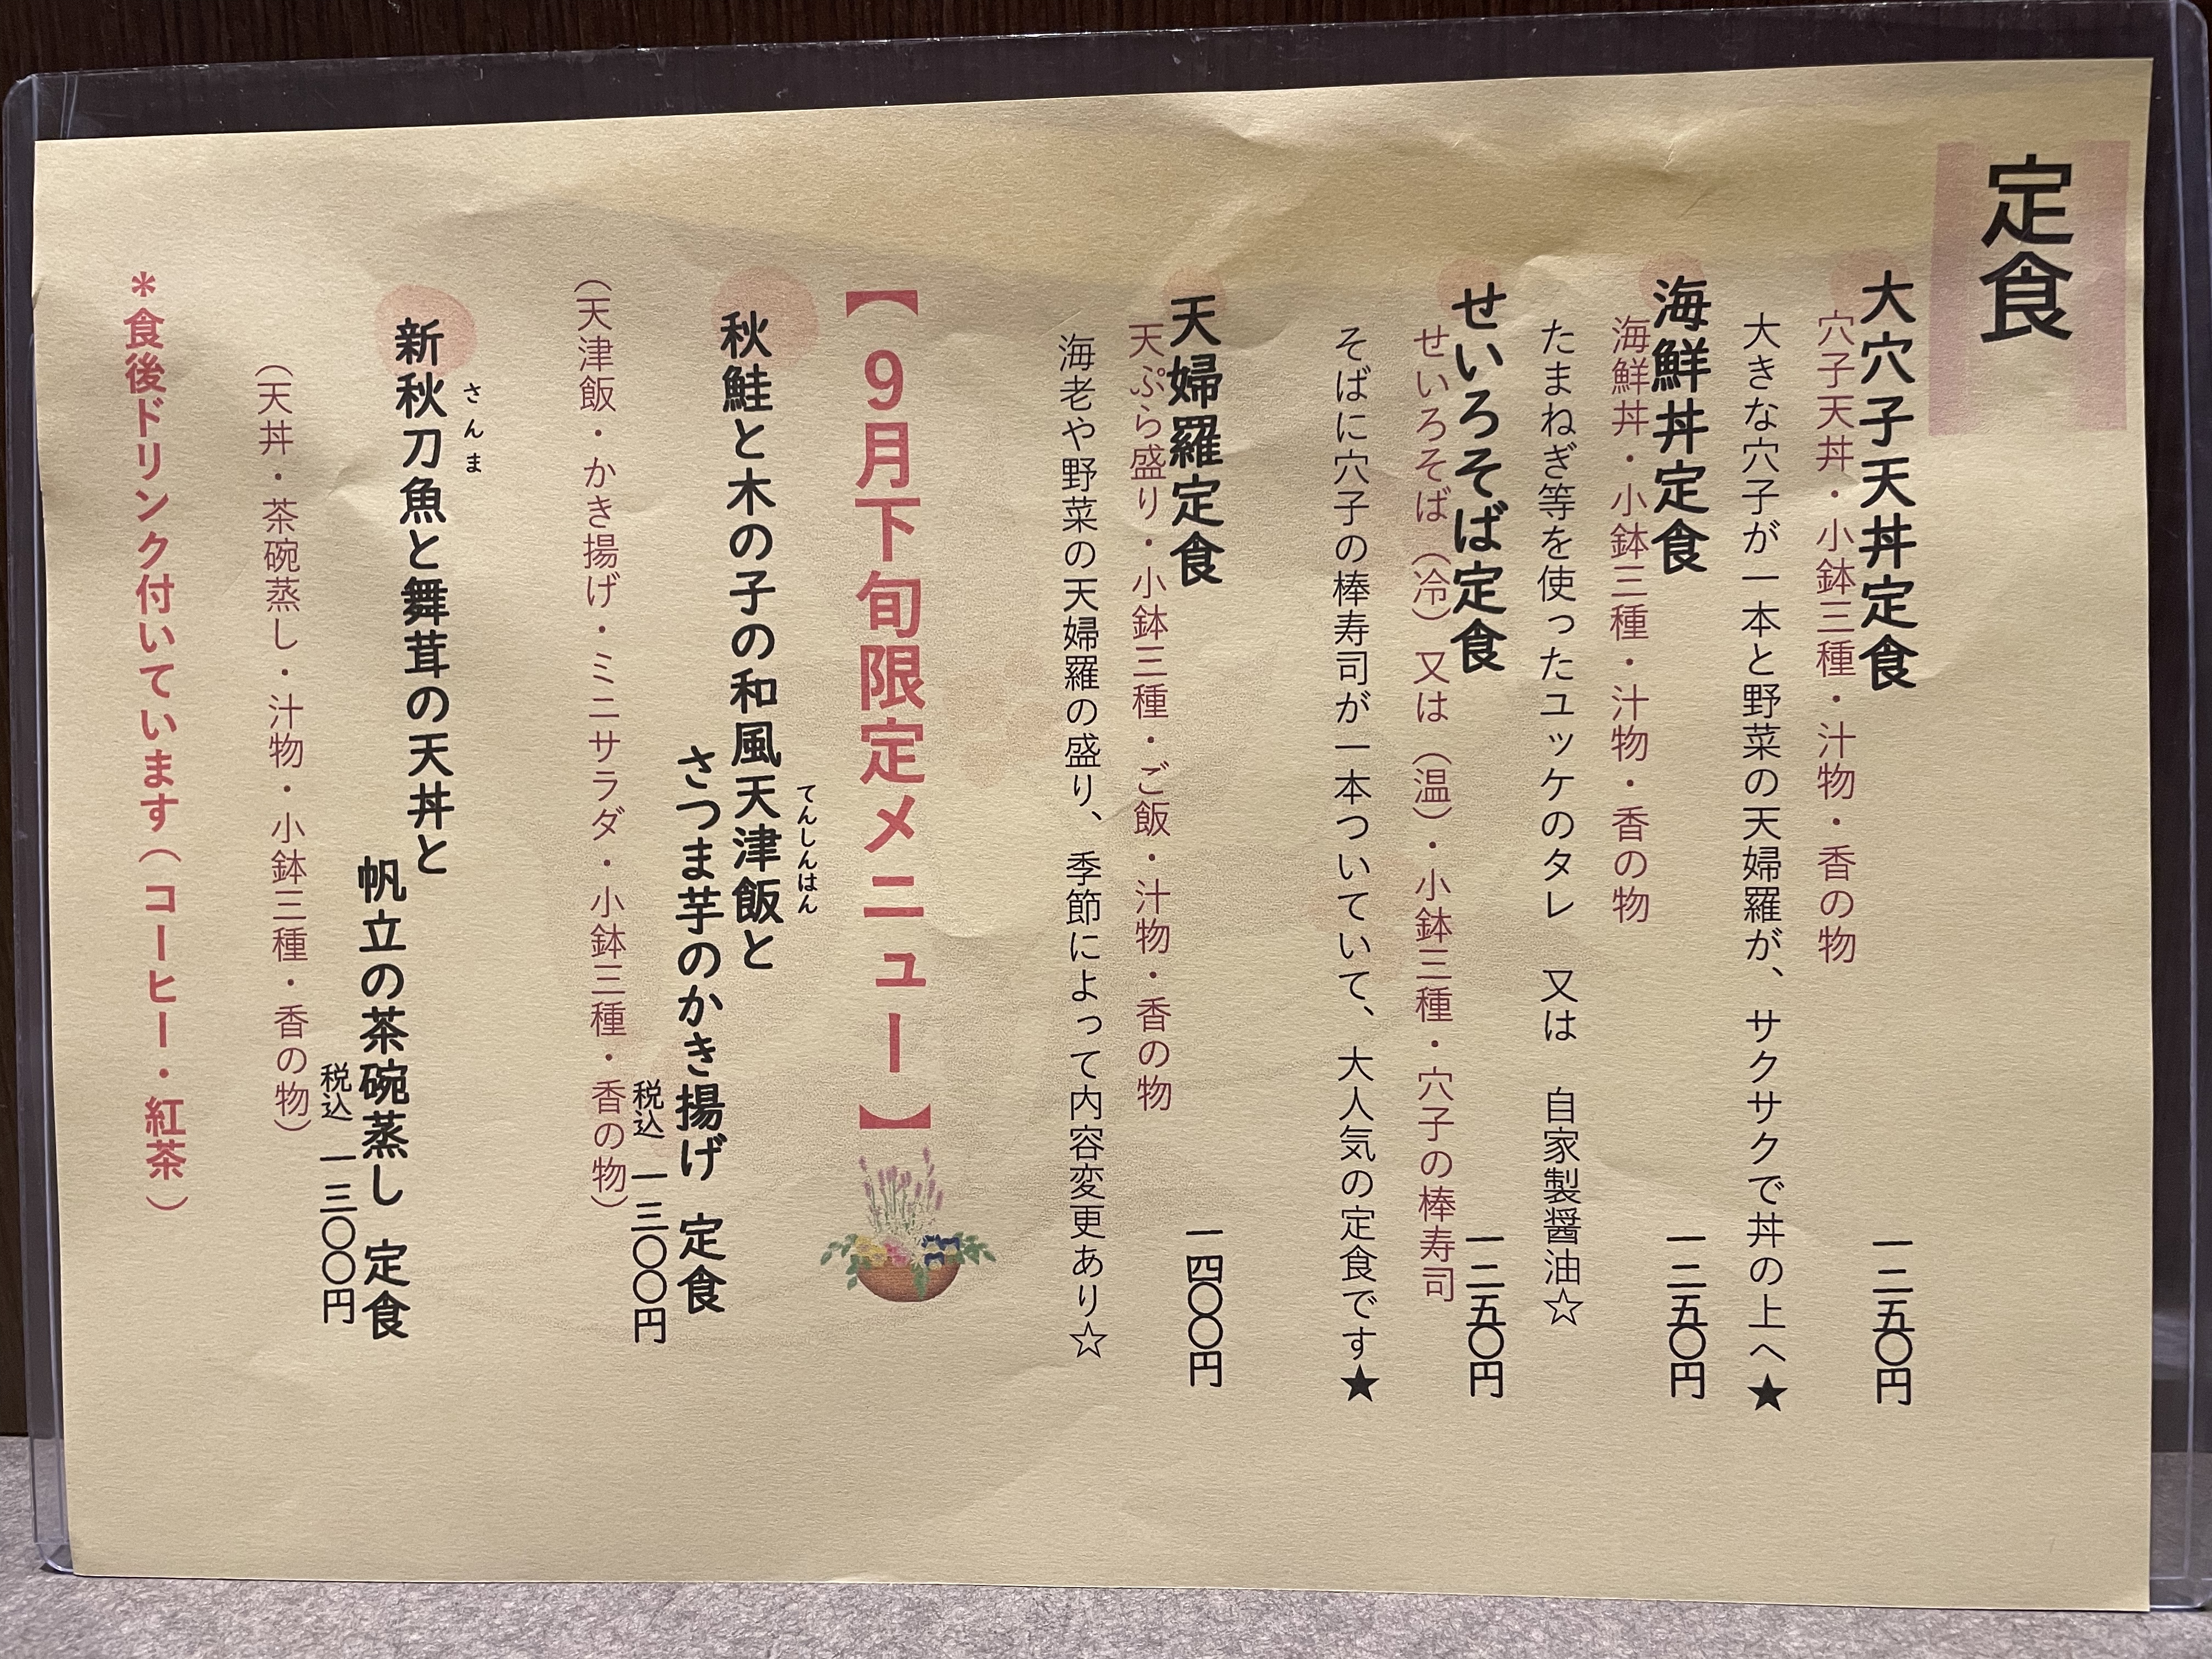 定食
大穴子天丼定食
一二五〇円
穴子天丼・小鉢三種・汁物・香の物
大きな穴子が一本と野菜の天婦羅が、サクサクで丼の上へ★
海鮮丼定食
一二五〇円
海鮮丼・小鉢三種・汁物・香の物
たまねぎ等を使ったユッケのタレ　又は　自家製醤油☆
せいろそば定食
一二五〇円
せいろそば（冷）又は（温）・小鉢三種・穴子の棒寿司
そばに穴子の棒寿司が一本ついていて、大人気の定食です★
天婦羅定食
一四〇〇円
天ぷら盛り・小鉢三種・ご飯・汁物・香の物
海老や野菜の天婦羅の盛り、季節によって内容変更あり☆
【９月下旬限定メニュー】
てんしんはん
秋鮭と木の子の和風天津飯と
さつま芋のかき揚げ　定食
税込　一三〇〇円
（天津飯・かき揚げ・ミニサラダ・小鉢三種・香の物）
さんま
新秋刀魚と舞茸の天丼と
帆立の茶碗蒸し　定食
税込　一三〇〇円
（天丼・茶碗蒸し・汁物・小鉢三種・香の物）
＊食後ドリンク付いています（コーヒー・紅茶）